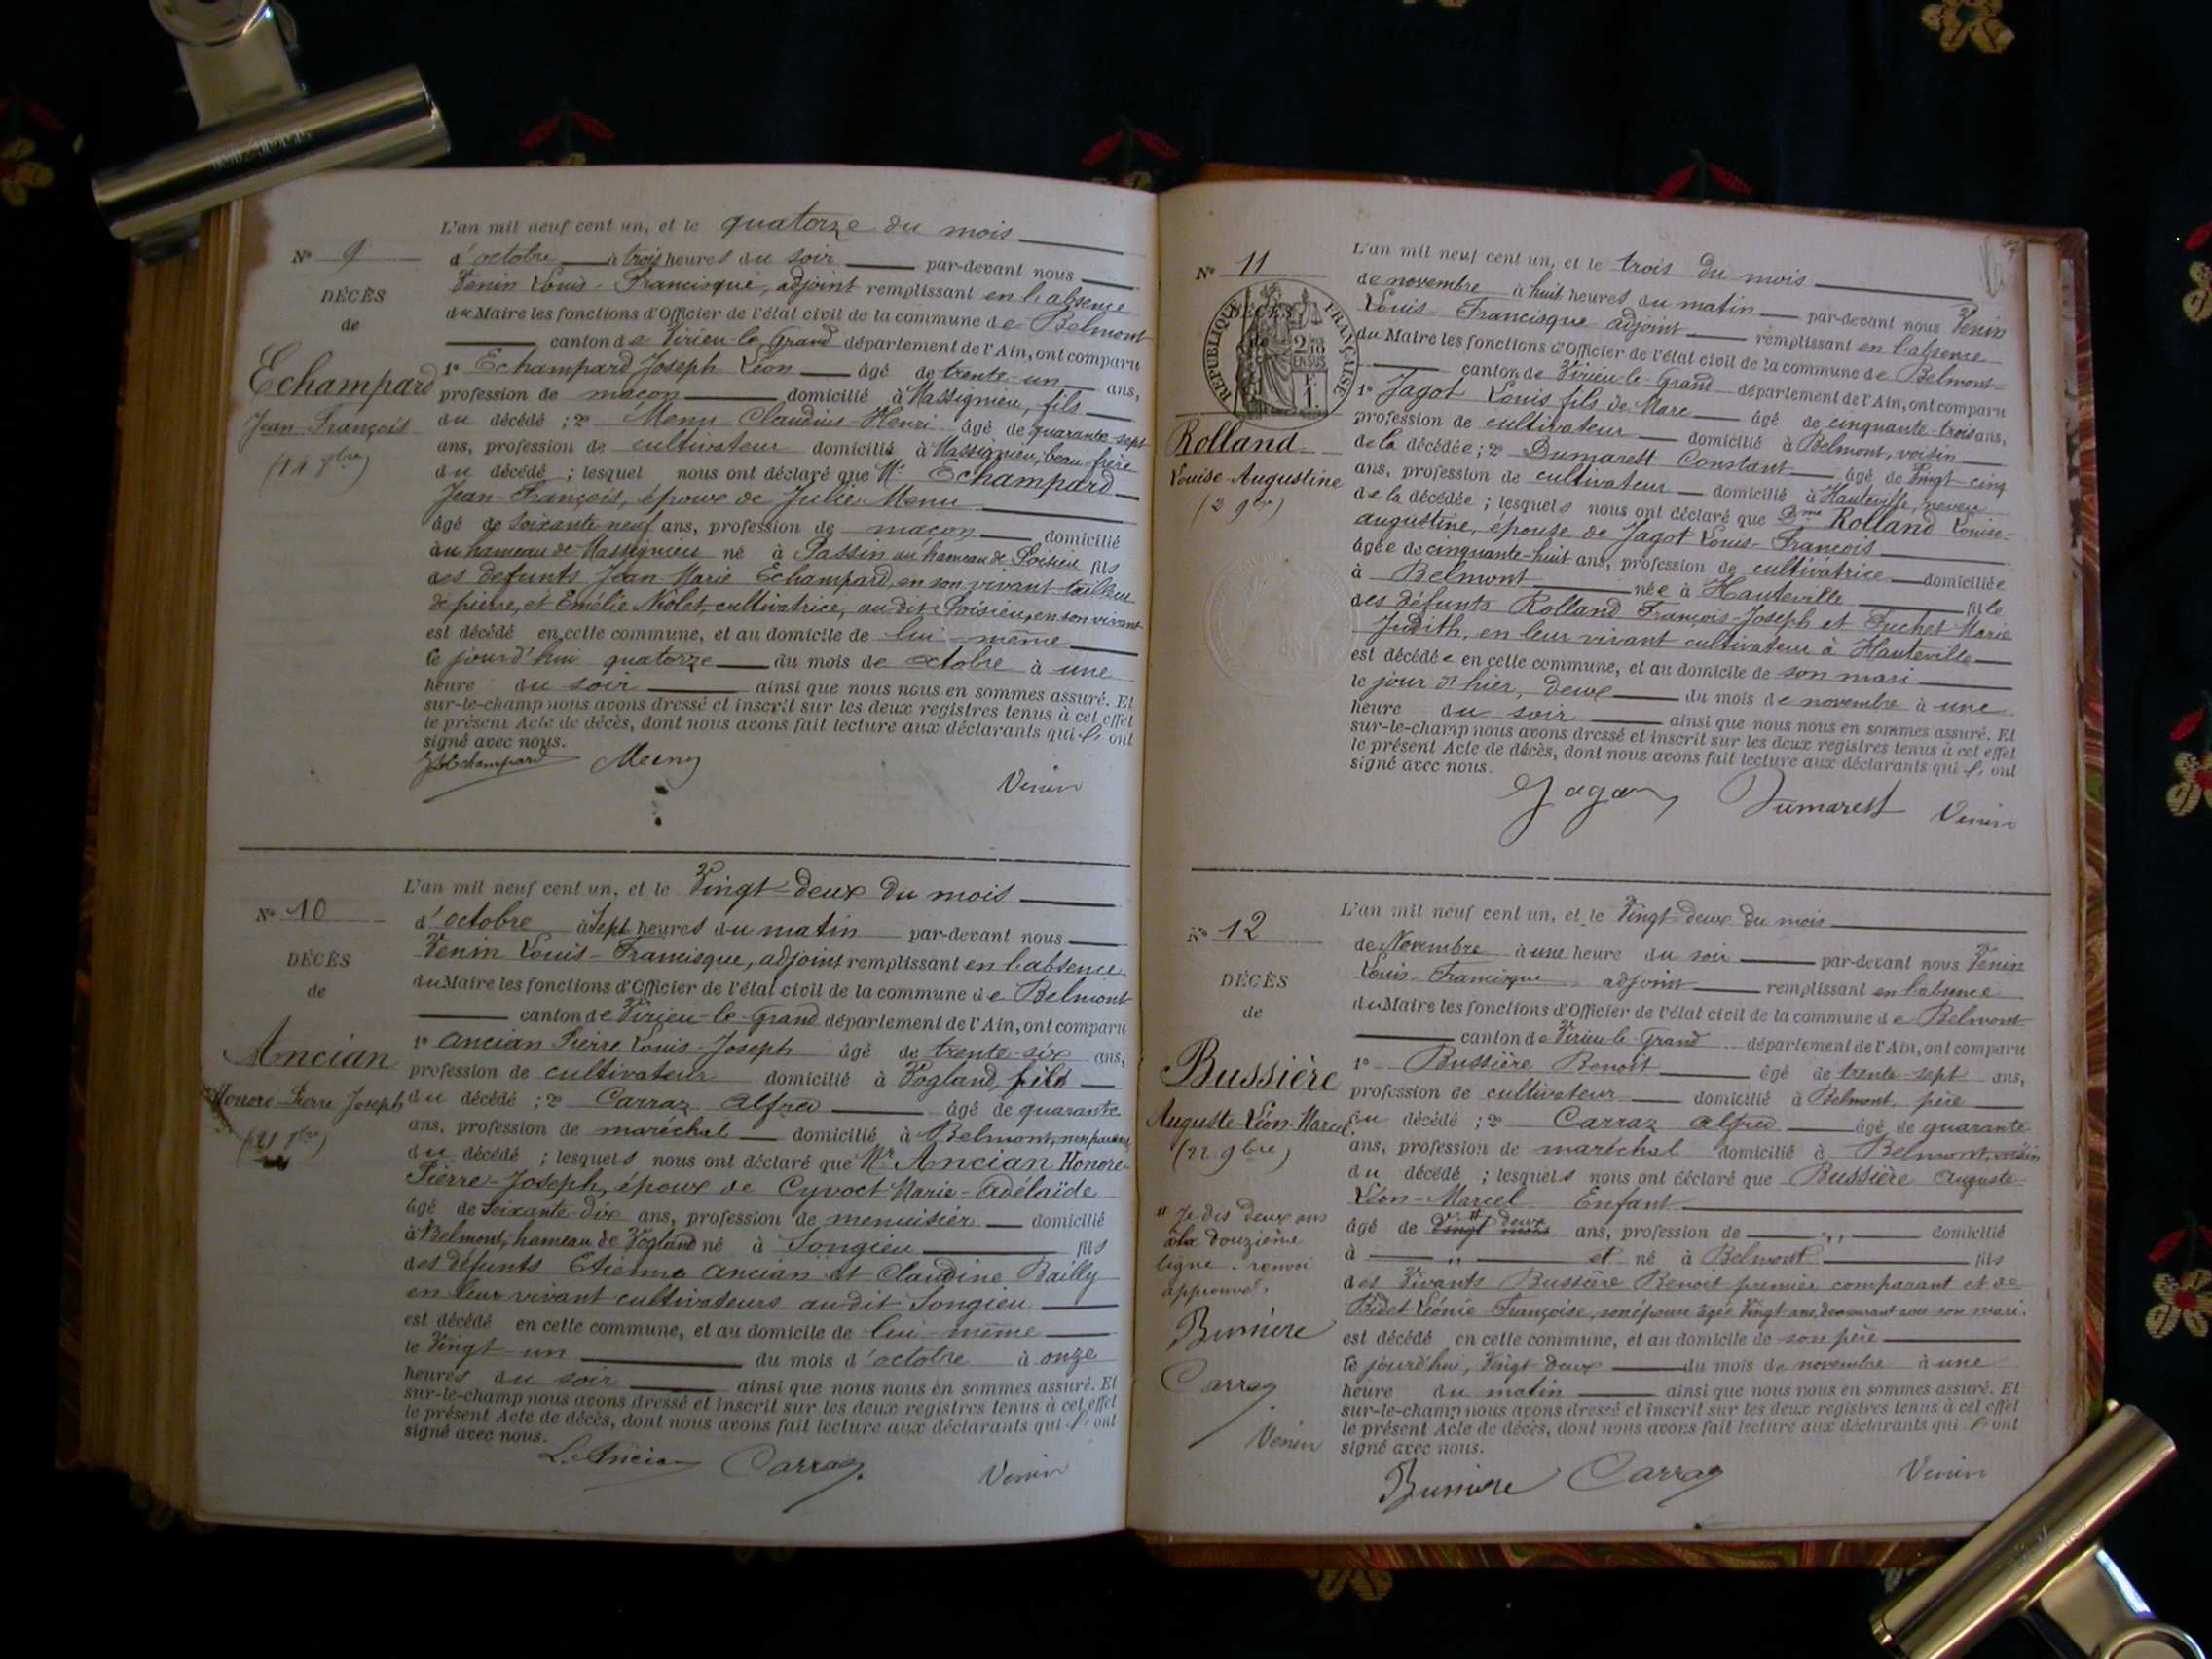 L'an mil neuf cent un, et le quatorze du mois
N° 9
d'octobre à trois heures du soir par-devant nous
DÉCÈS
Venin Louis-Francisque, adjoint remplissant en l'absence
de
du Maire les fonctions d'Officier de l'état civil de la commune de Belmont
canton de Virieu-le-Grand département de l'Ain, ont comparu
Echampard
1° Echampard Joseph Léon âgé de trente-un ans,
profession de maçon domicilié à Massignieu, fils
Jean-François
du décédé ; 2° Menu Claudius-Henri âgé de quarante-sept
ans, profession de cultivateur domicilié à Massignieu, beau-frère
(14 8bre)
du décédé ; lesquel nous ont déclaré que Mr Echampard
Jean-François, époux de Julie Menu
âgé de soixante neuf ans, profession de maçon domicilié
au hameau de Massignieu né à Passin au hameau de Poisieu fils
des defunts Jean Marie Echampard, en son vivant tailleur
de pierre, et Emélie Niolet, cultivatrice, au dit Poisieu, en son vivant
est décédé en cette commune, et au domicile de lui-même
le jourd'hui quatorze du mois de octobre à une
heure du soir ainsi que nous nous en sommes assuré. Et
sur-le-champ nous avons dressé et inscrit sur les deux registres tenus à cet effet
le présent Acte de décès, dont nous avons fait lecture aux déclarants qui l'ont
signé avec nous.
Echampard Menu
Venin
L'an mil neuf cent un, et le Vingt-deux du mois
N° 10
d'octobre à sept heures du matin par-devant nous
DÉCÈS
Venin Louis-Francisque, adjoint remplissant en l'absence
de
du Maire les fonctions d'Officier de l'état civil de la commune de Belmont
canton de Virieu-le-Grand département de l'Ain, ont comparu
Ancian
1° Ancian Pierre Louis-Joseph âgé de trente-six ans,
profession de cultivateur domicilié à Vogland, fils
Honoré-Pierre Joseph
du décédé ; 2° Carraz Alfred âgé de quarante
(21 8bre)
ans, profession de maréchal domicilié à Belmont, non parent
du décédé ; lesquels nous ont déclaré que Mr Ancian Honoré-
Pierre-Joseph, époux de Cyvoct Marie-Adélaïde
âgé de soixante-dix ans, profession de menuisier domicilié
à Belmont, hameau de Vogland né à Songieu fils
des défunts Etienne Ancian et Claudine Bailly
en leur vivant cultivateurs au dit Songieu
est décédé en cette commune, et au domicile de lui-même
le Vingt-un du mois d'octobre à onze
heures du soir ainsi que nous nous en sommes assuré. Et
sur-le-champ nous avons dressé et inscrit sur les deux registres tenus à cet effet
le présent Acte de décès, dont nous avons fait lecture aux déclarants qui l'ont
signé avec nous.
L. Ancian Carraz Venin
L'an mil neuf cent un, et le trois du mois
N° 11
de novembre à huit heures du matin par-devant nous Venin
RÉPUBLIQUE FRANÇAISE
DÉCÈS
de
2/10 EN SUS
F. 1.
Louis-Francisque adjoint remplissant en l'absence
du Maire les fonctions d'Officier de l'état civil de la commune de Belmont
canton de Virieu-le-Grand département de l'Ain, ont comparu
1° Jagot Louis fils de Marc âgé de cinquante-trois ans,
profession de cultivateur domicilié à Belmont, voisin
Rolland
de la décédée ; 2° Dumarest Constant âgé de Vingt-cinq
Louise-Augustine
ans, profession de cultivateur domicilié à Hauteville, neveu
(2 9bre)
de la décédée ; lesquels nous ont déclaré que Dme Rolland Louise-
Augustine, épouse de Jagot Louis-François
âgée de cinquante-huit ans, profession de cultivatrice domiciliée
à Belmont née à Hauteville fille
des défunts Rolland François-Joseph et Fuchet Marie
Judith, en leur vivant cultivateur à Hauteville
est décédée en cette commune, et au domicile de son mari
le jour d'hier, deux du mois de novembre à une
heure du soir ainsi que nous nous en sommes assuré. Et
sur-le-champ nous avons dressé et inscrit sur les deux registres tenus à cet effet
le présent Acte de décès, dont nous avons fait lecture aux déclarants qui l'ont
signé avec nous.
Jagot Dumarest Venin
L'an mil neuf cent un, et le Vingt-deux du mois
N° 12
de Novembre à une heure du soir par-devant nous Venin
DÉCÈS
Louis-Francisque adjoint remplissant en l'absence
de
du Maire les fonctions d'Officier de l'état civil de la commune de Belmont
canton de Virieu-le-Grand département de l'Ain, ont comparu
Bussière
1° Bussière Benoît âgé de trente-sept ans,
profession de cultivateur domicilié à Belmont, père
Auguste-Léon-Marcel
du décédé ; 2° Carraz Alfred âgé de quarante
(22 9bre)
ans, profession de maréchal domicilié à Belmont, voisin
du décédé ; lesquels nous ont déclaré que Bussière Auguste-
Léon-Marcel Enfant
# Je dis deux ans
à la douzième
ligne. renvoi
approuvé.
âgé de Vingt # deux mois ans, profession de ,, domicilié
à ,, et né à Belmont fils
des Vivants Bussière Benoît premier comparant et de
Bidet Léonie Françoise, son épouse âgée Vingt ans, demeurant avec son mari.
Bussière
est décédé en cette commune, et au domicile de son père
Carraz
le jourd'hui, Vingt-deux du mois de novembre à une
heure du matin ainsi que nous nous en sommes assuré. Et
sur-le-champ nous avons dressé et inscrit sur les deux registres tenus à cet effet
Venin
le présent Acte de décès, dont nous avons fait lecture aux déclarants qui l'ont
signé avec nous.
Bussière Carraz Venin